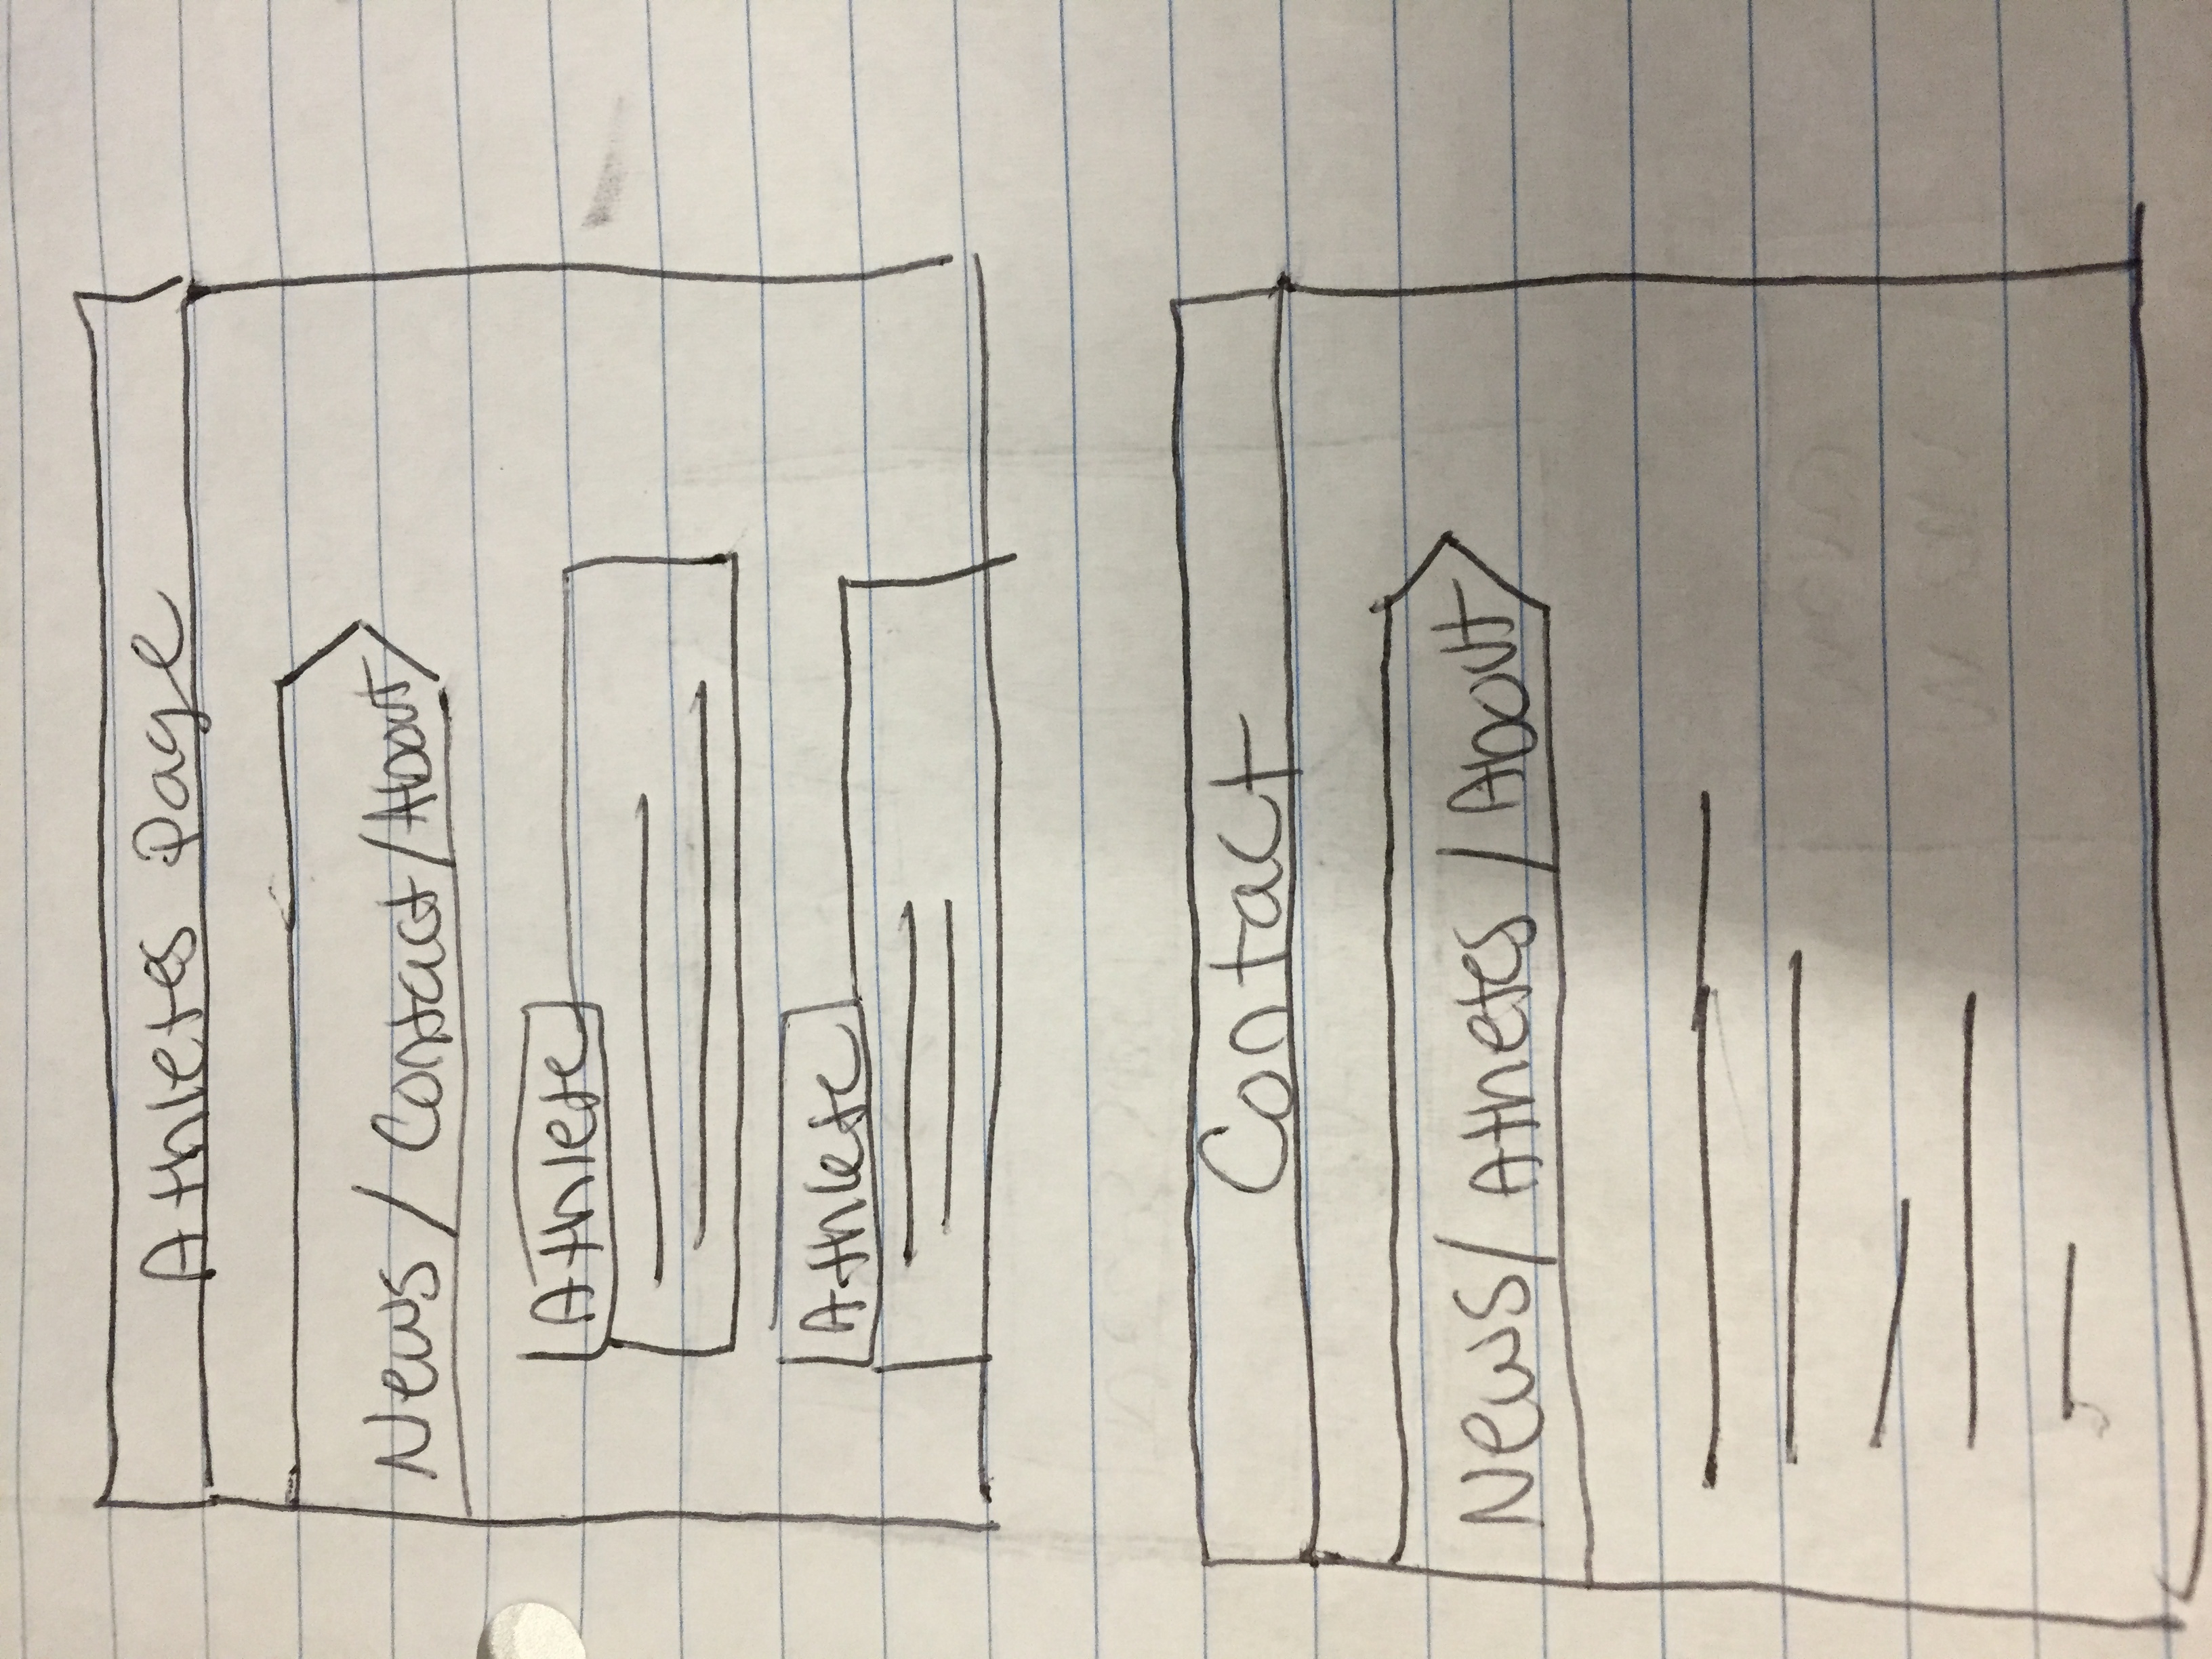 Athletes Page
News / Contact / About
Athlete
Athlete
Contact
News / Athetes / About